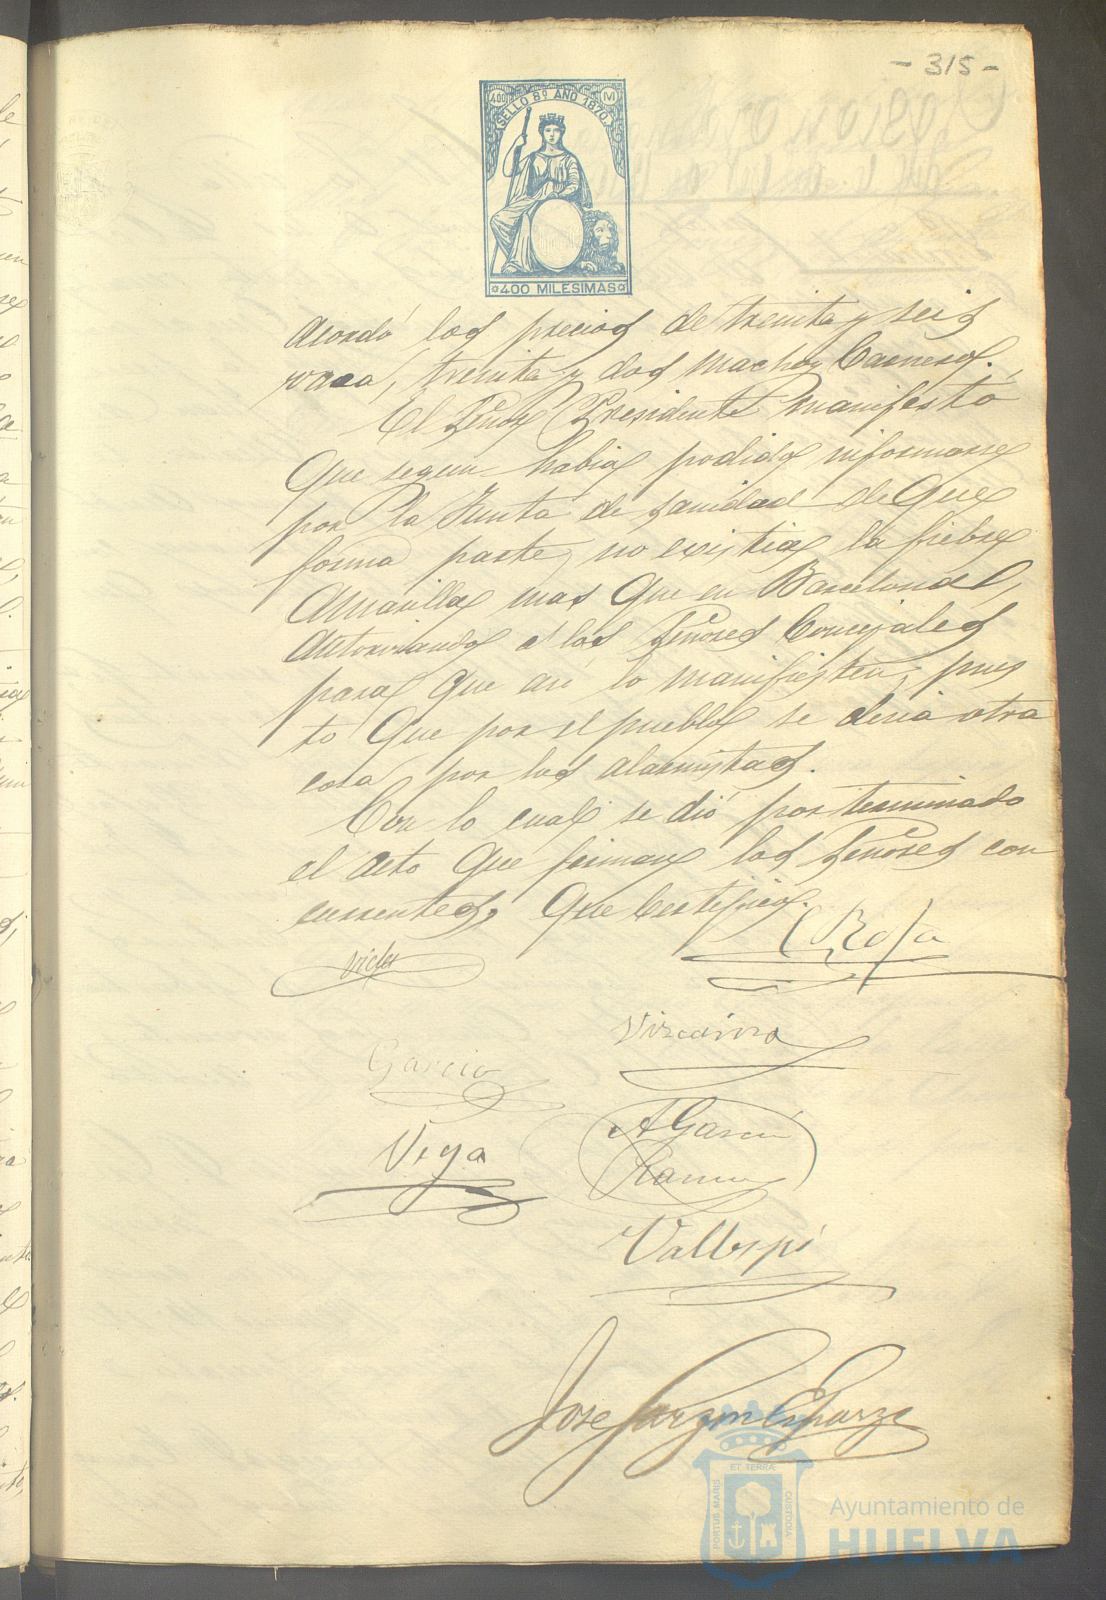 - 315 -
400 M
SELLO 8º AÑO 1870.
400 MILESIMAS
acordó los precios de treinta y seis
vaca, treinta y dos machos Carneros.
El Señor Presidente manifestó
que segun habia podido informarse
por la Junta de Sanidad de que
forma parte, no existia la fiebre
Amarilla mas que en Barcelona,
autorizando á los Señores Concejales
para que asi lo manifiesten, pues
to que por el pueblo se decia otra
cosa por los alarmistas.
Con lo cual se dió por terminado
el acto que firman los Señores con
currentes, que Certifico.
Rosa
Garcia
Vizcaino
Vega
A Garcia
Ramos
Vallespi
Jose Garzon Esparza
ET TERRÆ
PORTUS MARIS
CUSTODIA
Ayuntamiento de
HUELVA